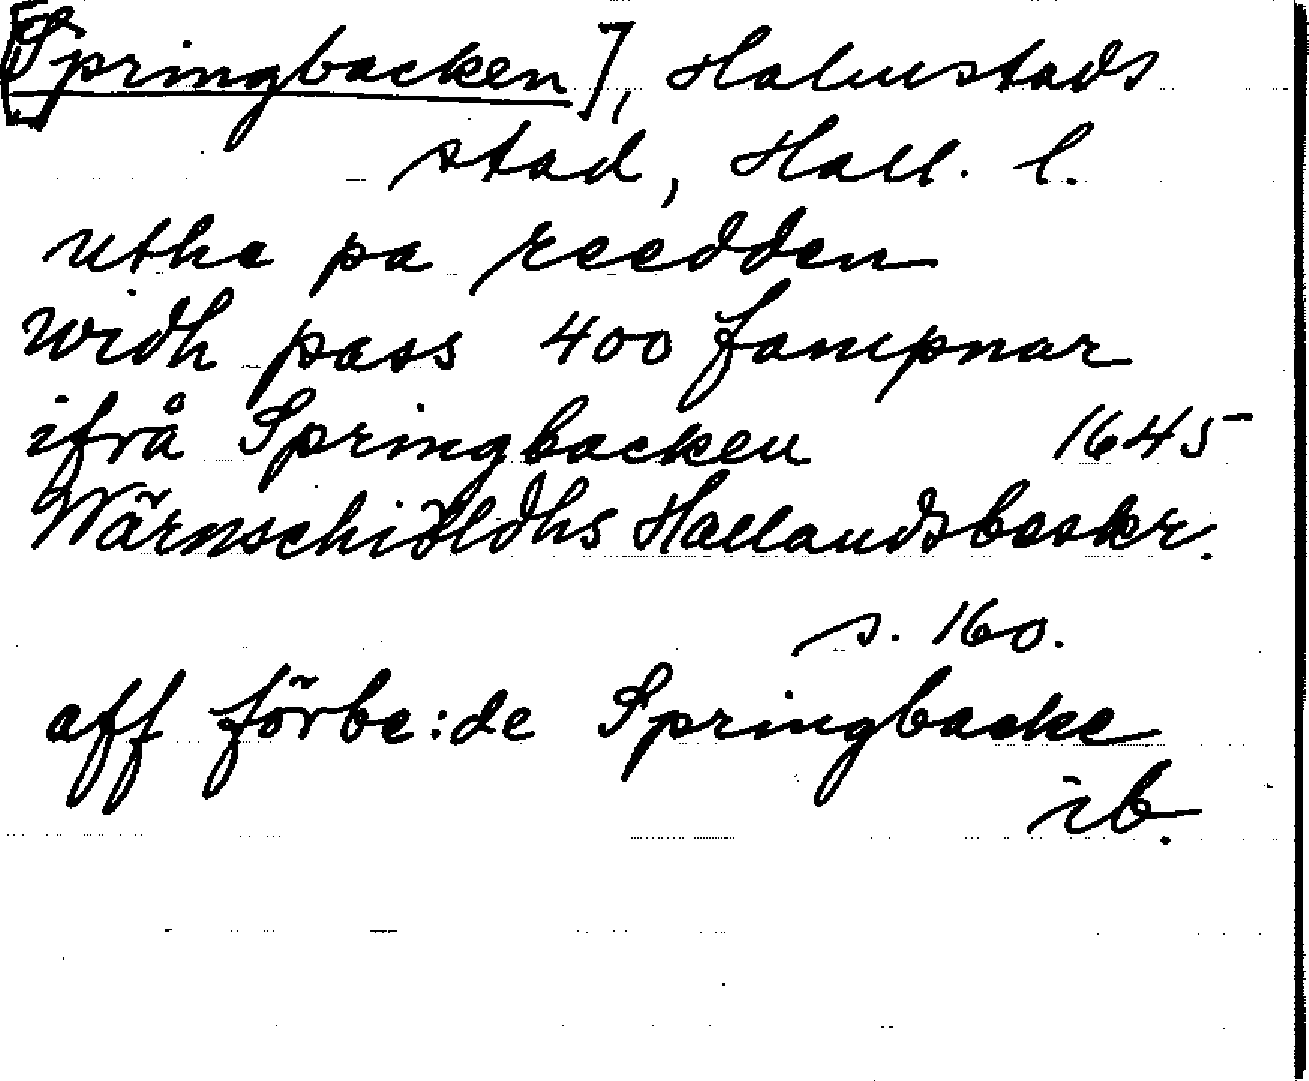 [Springbacken], Halmstads
stad, Hall. l.
utha pa reedden
widh pass 400 fampnar
ifrå Springbacken 1645
Wärnschiöldhs Hallandsbeskr.
s. 160.
aff förbe:de Springbacke
ib.